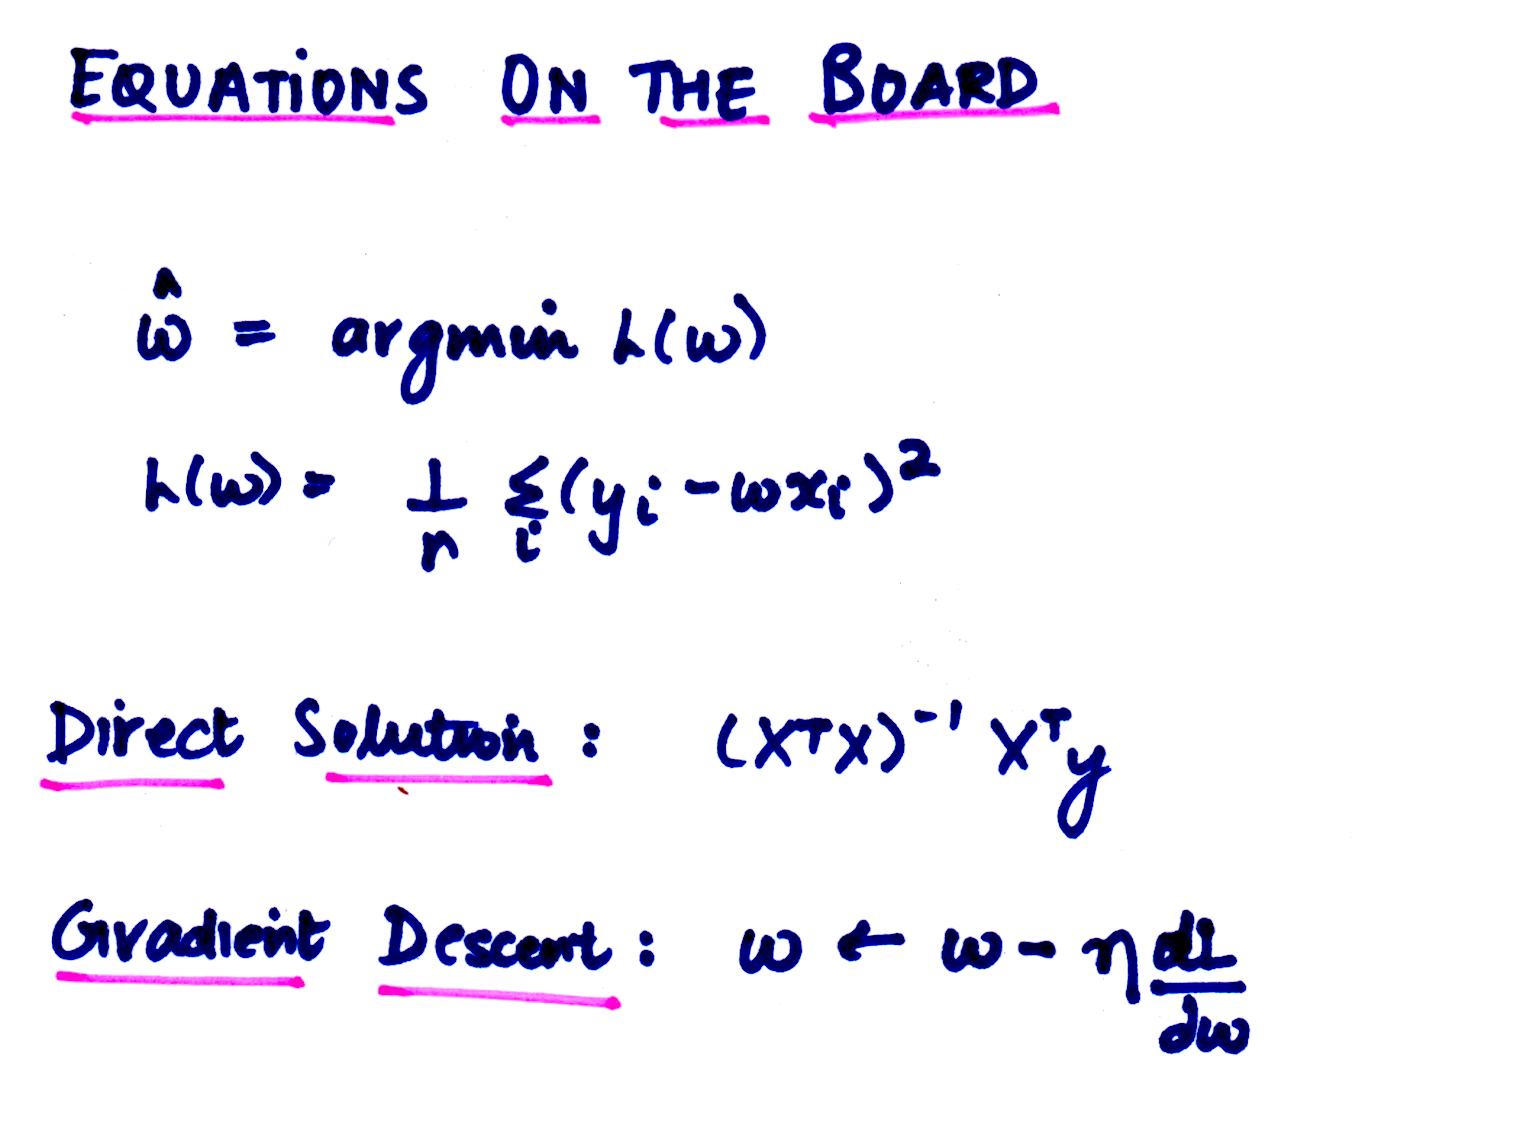 EQUATIONS ON THE BOARD
ŵ = argmin L(w)
L(w) = 1/n Σ_i (y_i - wx_i)^2
Direct Solution : (X^T X)^-1 X^T y
Gradient Descent : w ← w - η dL/dw